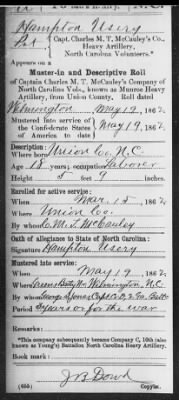 Hampton Usery
Pvt., Capt. Charles M. T. McCauley's Co.
Heavy Artillery,
North Carolina Volunteers.*
Appears on a
Muster-in and Descriptive Roll
of Captain Charles M. T. McCauley's Company of
North Carolina Vols., known as Monroe Heavy
Artillery, from Union County, Roll dated
Wilmington May 19, 1862
Mustered into service of
the Confederate States
of America to date
May 19, 1862
Description:
Where born Union Co. N.C.
Age 18 years; occupation Laborer
Height 5 feet 9 inches.
Enrolled for active service:
When Mar. 15, 1862
Where Union Co.
By C. M. T. McCauley
Oath of allegiance to State of North Carolina:
Signature Hampton Usery
Mustered into service:
When May 19, 1862
Where Wilmington, N.C.
By whom George
Period 3 years or for the war
Remarks:
*This company subsequently became Company C, 10th (also
known as Young's) Battalion North Carolina Heavy Artillery.
Book mark:
J B Dowd
(655) Copyist.